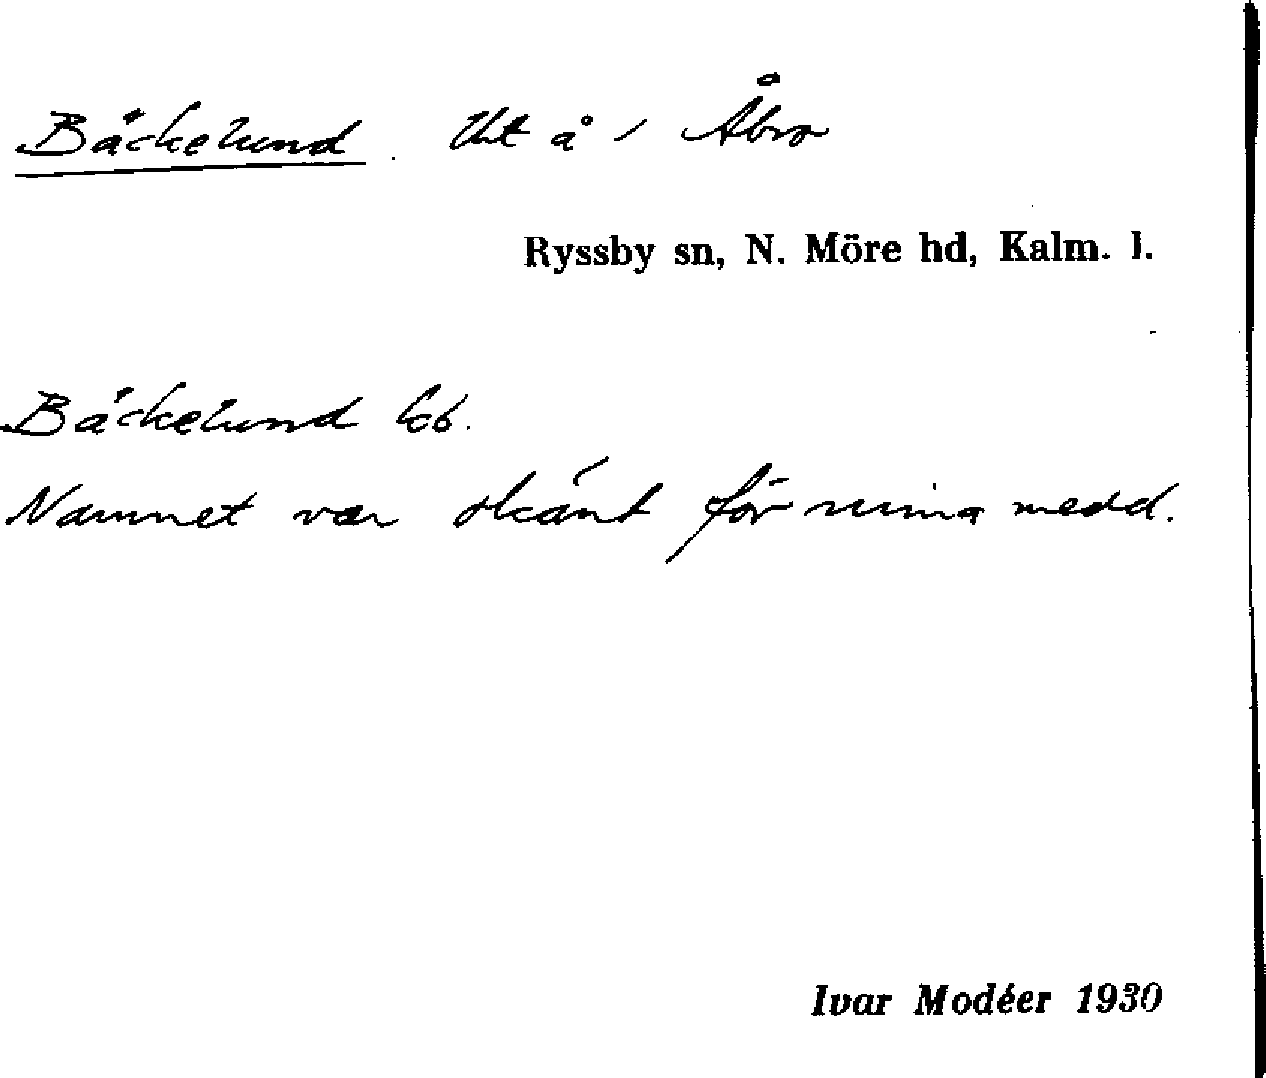 Bäckelund. Ut å i Åbro
Ryssby sn, N. Möre hd, Kalm. l.
Bäckelund Eb.
Namnet var okänt för mina medd.
Ivar Modéer 1930